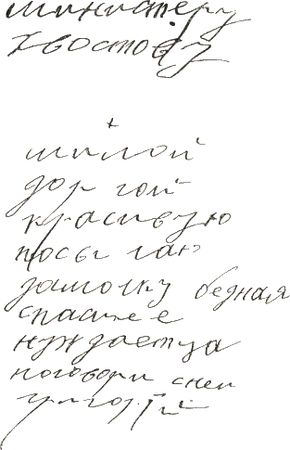 министеру
хвостову
+
милой
дор гой
красивую
посылаю
дамочку бедная
спаси ее
нуждаетца
поговори с ней
григорий